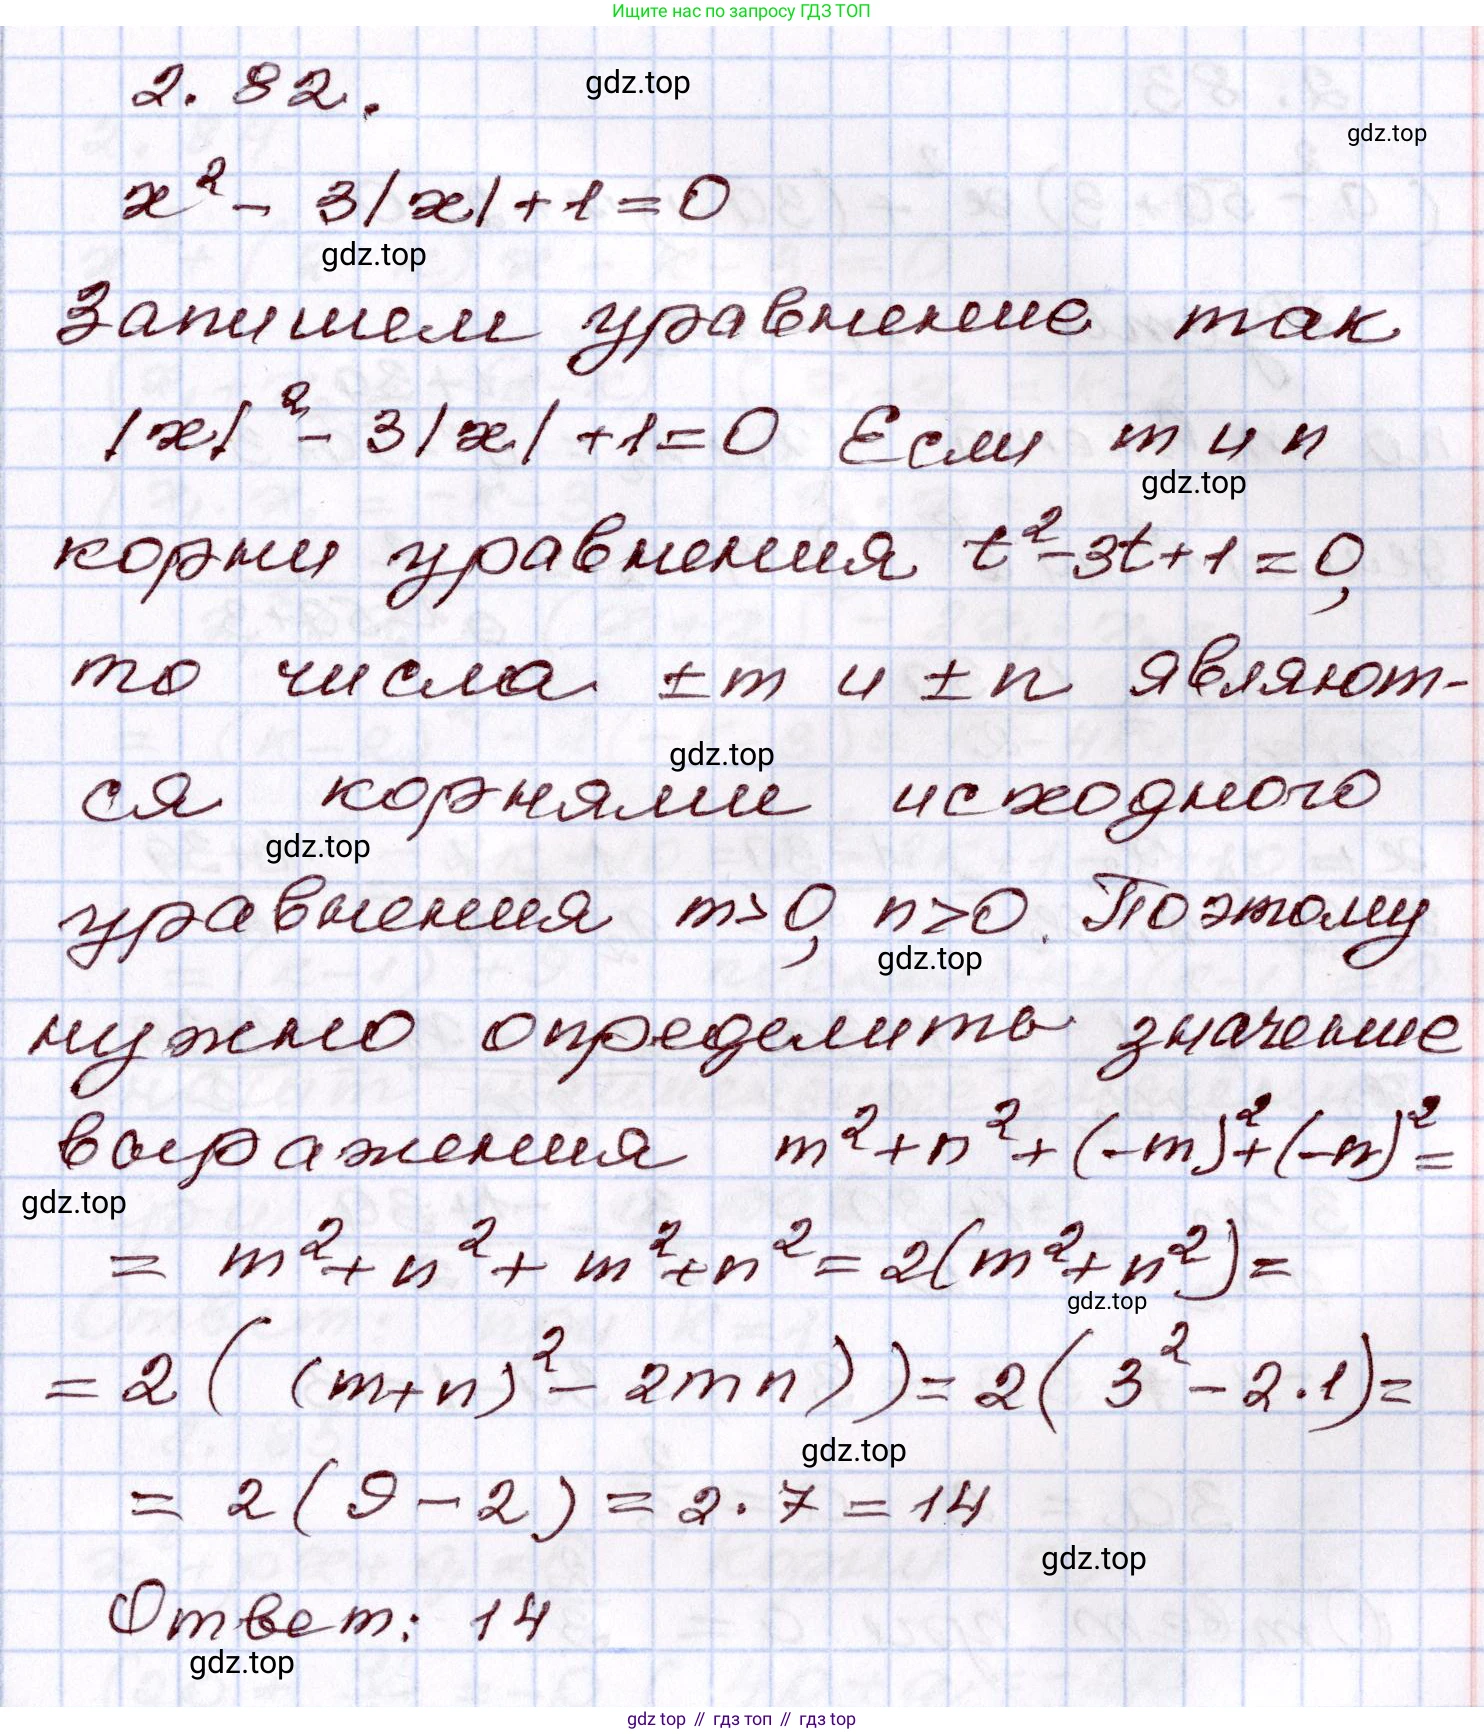 Ищите нас по запросу ГДЗ ТОП
2.82.
gdz.top
gdz.top
x² - 3|x| + 1 = 0
gdz.top
Запишем уравнение так
|x|² - 3|x| + 1 = 0 Если m и n
gdz.top
корни уравнения t² - 3t + 1 = 0,
то числа ±m и ±n являют-
gdz.top
ся корнями исходного
gdz.top
уравнения m>0, n>0. Поэтому
gdz.top
нужно определить значение
выражения m² + n² + (-m)² + (-n)² =
gdz.top
= m² + n² + m² + n² = 2(m² + n²) =
gdz.top
= 2((m+n)² - 2mn)) = 2(3² - 2·1) =
gdz.top
= 2(9 - 2) = 2·7 = 14
gdz.top
Ответ: 14
gdz.top
gdz top // гдз топ // гдз top